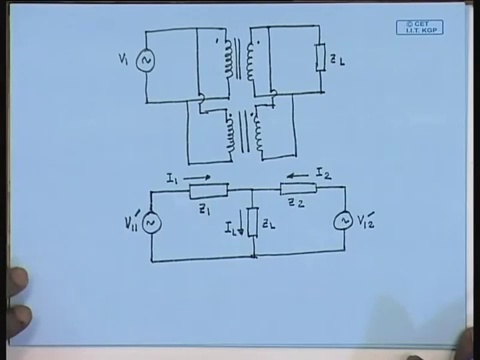 © CET
I.I.T. KGP
V1
ZL
I1
I2
Z1
Z2
V11'
IL
ZL
V12'